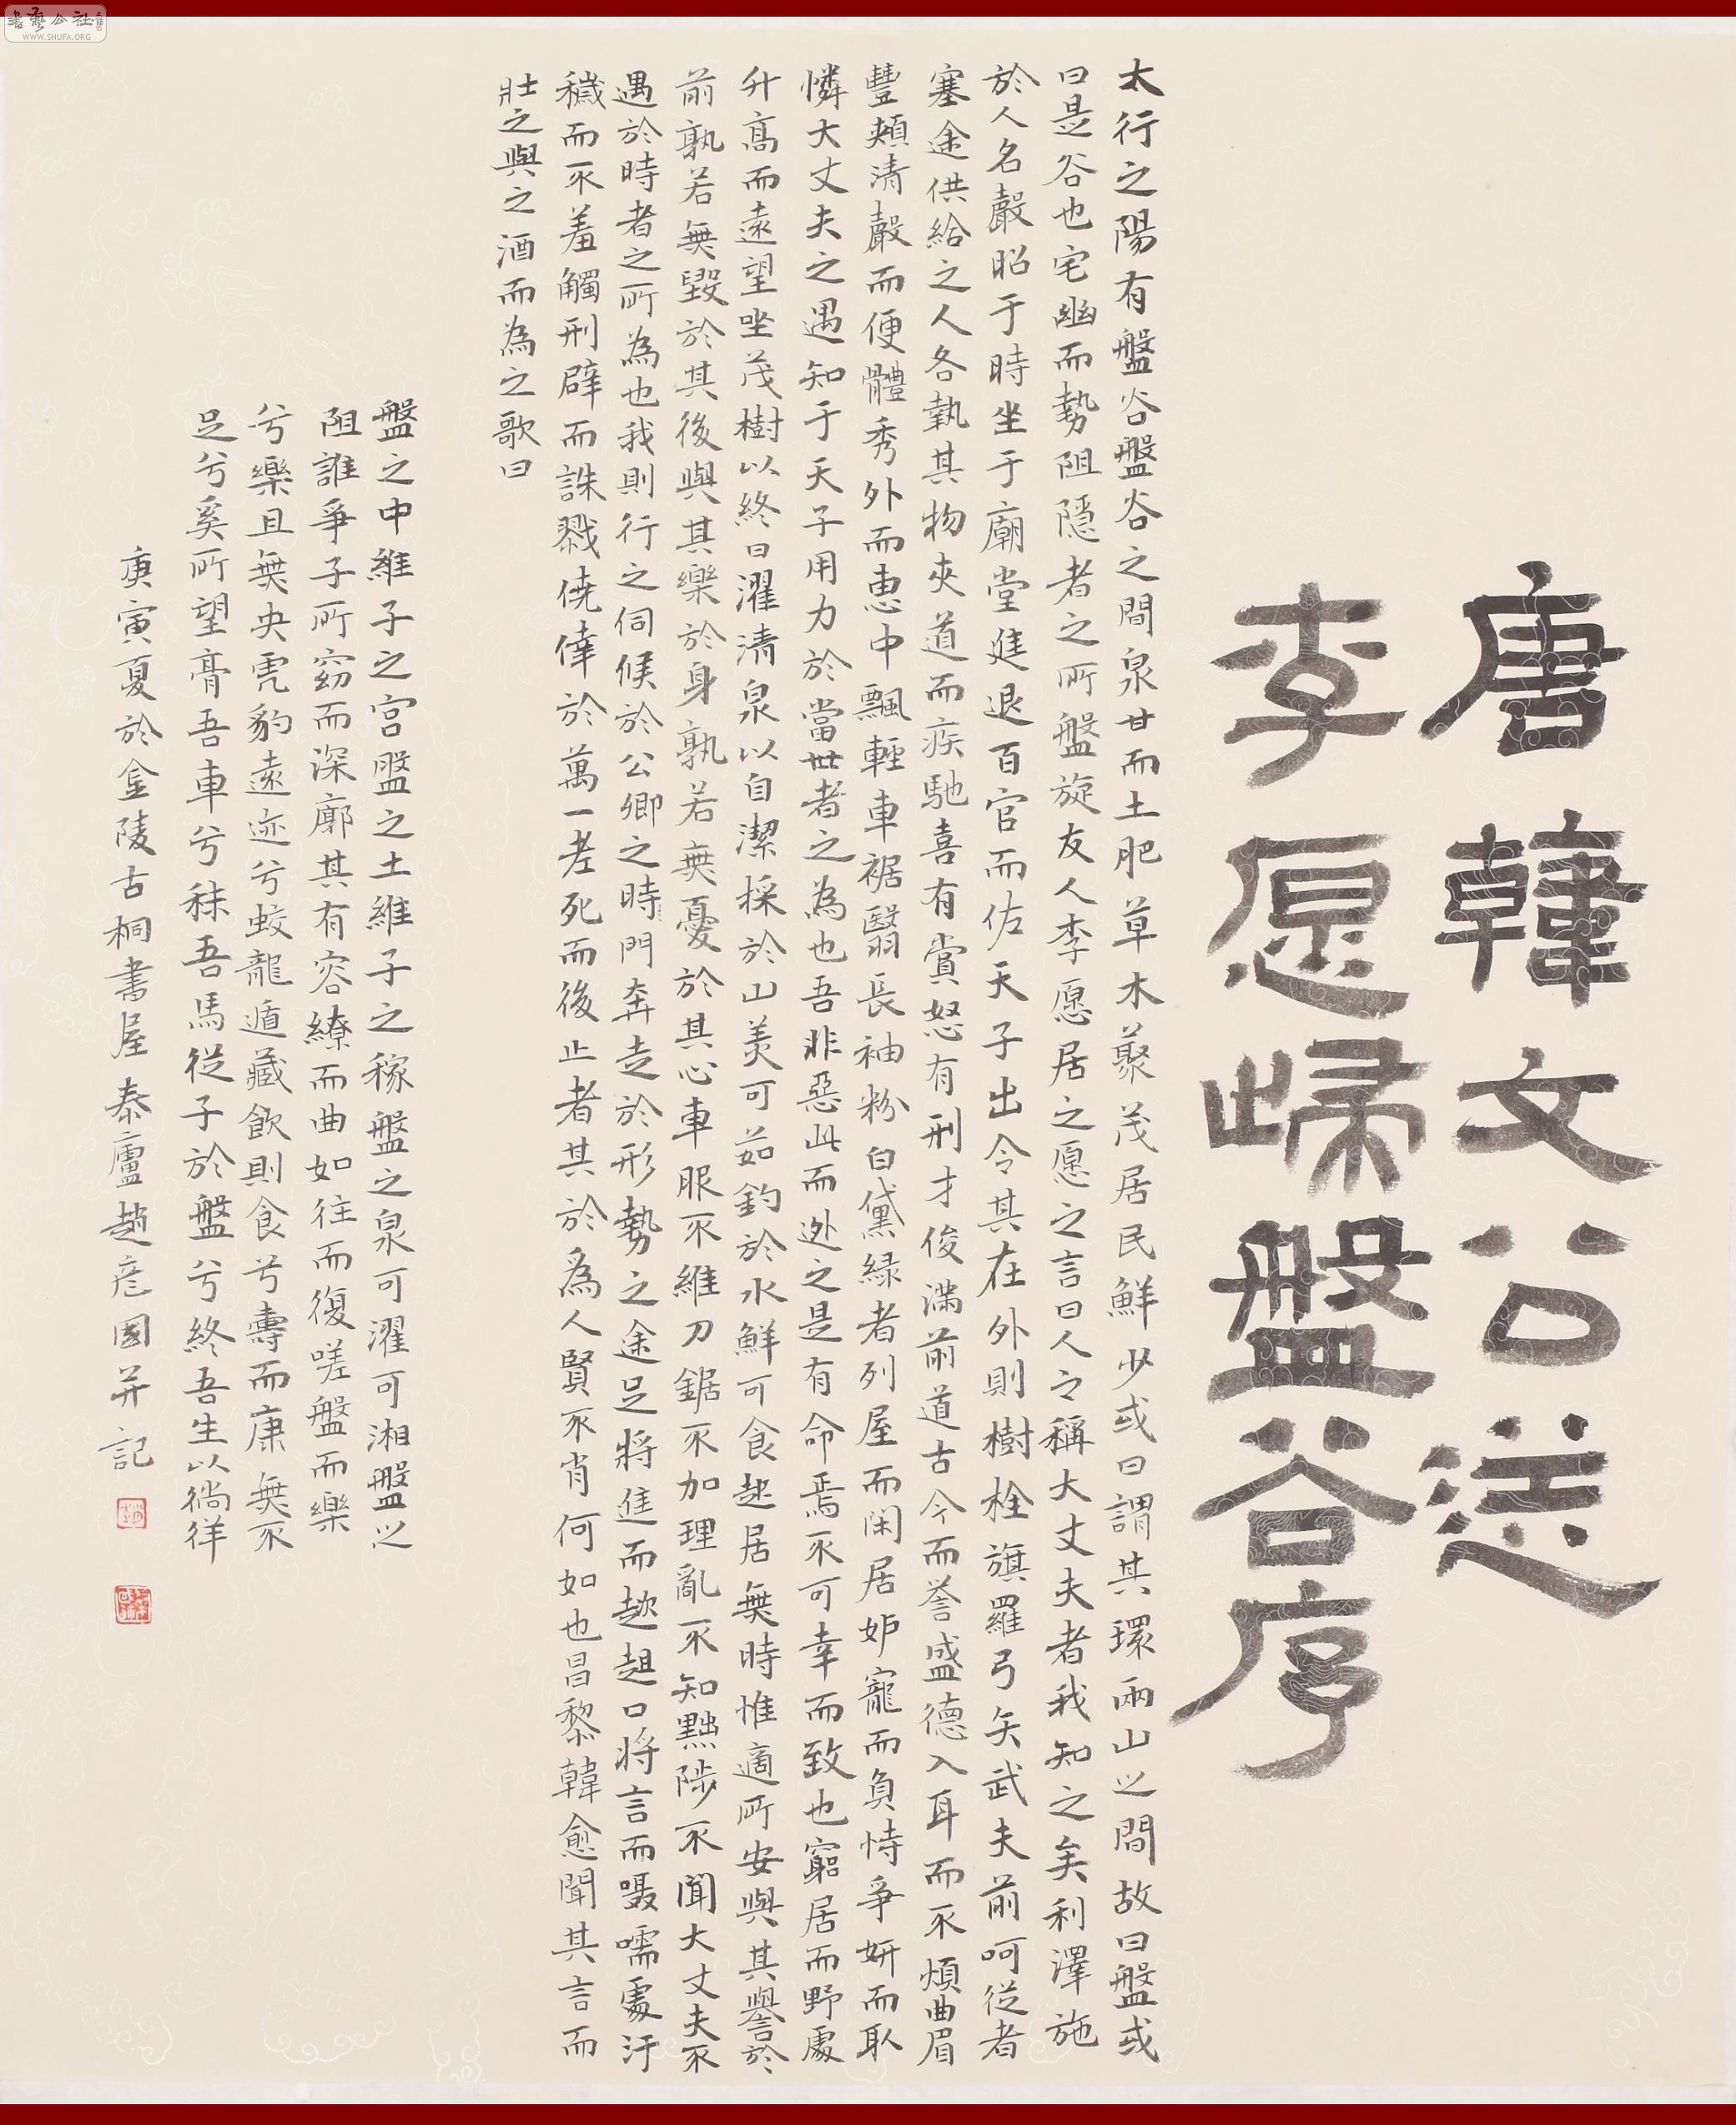 唐韓文公送
李愿歸盤谷序
太行之陽有盤谷盤谷之間泉甘而土肥草木藂茂居民鮮少或曰謂其環兩山之間故曰盤或
曰是谷也宅幽而勢阻隱者之所盤旋友人李愿居之愿之言曰人之稱大丈夫者我知之矣利澤施
於人名聲昭于時坐于廟堂進退百官而佐天子出令其在外則樹栓旗羅弓矢武夫前呵從者
塞途供給之人各執其物夾道而疾馳喜有賞怒有刑才俊滿前道古今而譽盛德入耳而不煩曲眉
豐頰清聲而便體秀外而惠中飄輕車裾翳長袖粉白黛綠者列屋而閑居妒寵而負恃爭妍而取
憐大丈夫之遇知于天子用力於當世者之為也吾非惡此而逃之是有命焉不可幸而致也窮居而野處
升高而遠望坐茂樹以終日濯清泉以自潔採於山美可茹釣於水鮮可食起居無時惟適所安與其譽於
前孰若無毀於其後與其樂於身孰若無憂於其心車服不維刀鋸不加理亂不知黜陟不聞大丈夫不
遇於時者之所為也我則行之伺候於公卿之時門奔走於形勢之途足將進而趑趄口將言而囁嚅處汙
穢而不羞觸刑辟而誅戮僥倖於萬一老死而後止者其於為人賢不肖何如也昌黎韓愈聞其言而
壯之與之酒而為之歌曰
盤之中維子之宮盤之土維子之稼盤之泉可濯可湘盤之
阻誰爭子所窈而深廓其有容繚而曲如往而復嗟盤而樂
兮樂且無央虎豹遠迹兮蛟龍遁藏飲則食兮壽而康無不
足兮奚所望膏吾車兮秣吾馬從子於盤兮終吾生以徜徉
庚寅夏於金陵古桐書屋泰廬趙彥國并記
書藝公社
WWW.SHUFA.ORG